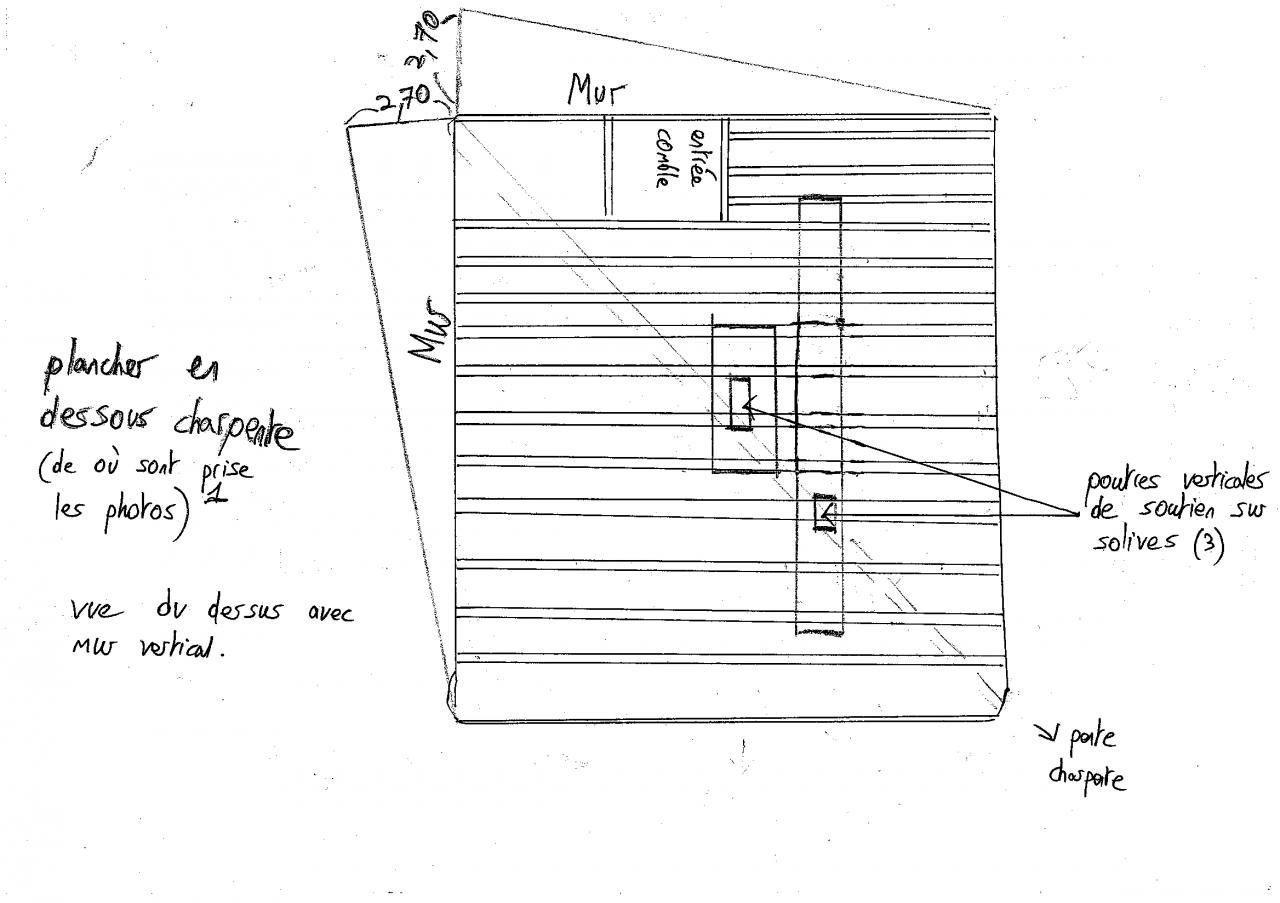 2,70
2,70
Mur
entrée
comble
Mur
plancher en
dessous charpente
(de où sont prise
les photos) 1
vue du dessus avec
mur vertical.
poutres verticales
de soutien sur
solives (3)
↘ pente
charpente